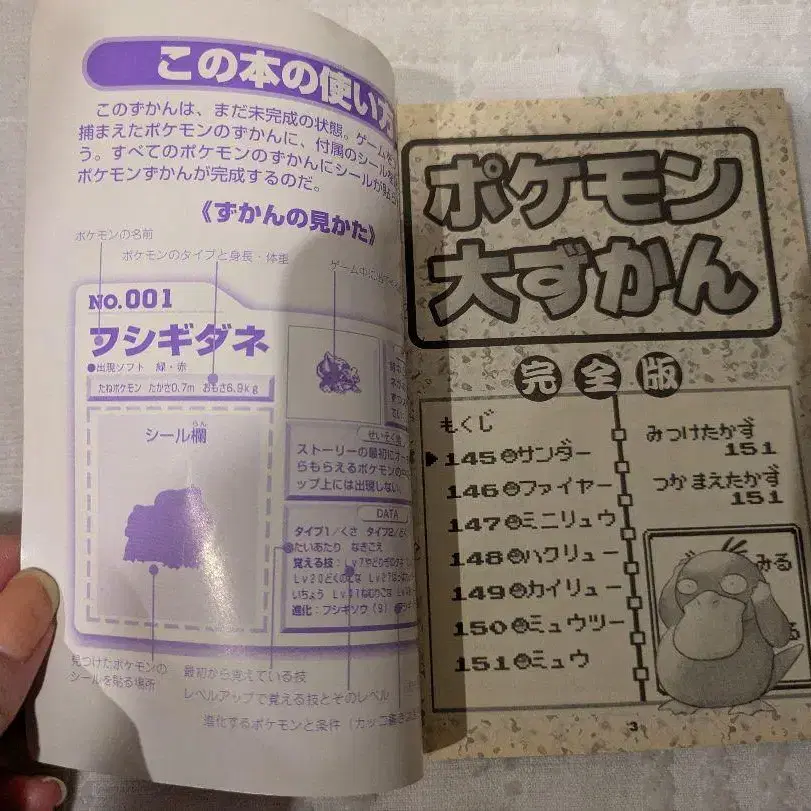 この本の使い方
このずかんは、まだ未完成の状態。ゲーム
捕まえたポケモンのずかんに、付属のシールを
う。すべてのポケモンのずかんにシールが
ポケモンずかんが完成するのだ。
《ずかんの見かた》
ポケモンの名前
ポケモンのタイプと身長・体重
NO.001
フシギダネ
●出現ソフト 緑・赤
たねポケモン たかさ0.7m おもさ6.9kg
シール欄
らん
せいそく地
ストーリーの最初にオー
らもらえるポケモンの
ップ上には出現しない。
DATA
タイプ1/くさ タイプ2/どく
たいあたり なきごえ
覚える技:Lv7やどりぎのタネ
進化:フシギソウ
見つけたポケモンの
シールを貼る場所
最初から覚えている技
レベルアップで覚える技とそのレベル
進化するポケモンと条件(カッコ書き
ポケモン
大ずかん
完全版
もくじ
145サンダー
146ファイヤー
147ミニリュウ
148ハクリュー
149カイリュー
150ミュウツー
151ミュウ
みつけたかず
151
つかまえたかず
151
みる
3